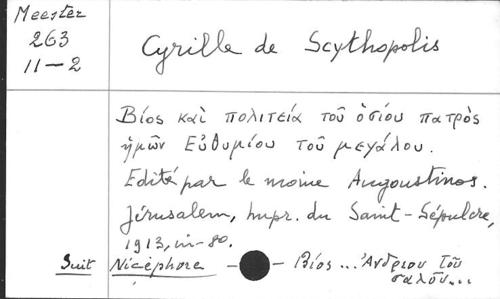 Meester
263
11-2
Cyrille de Scythopolis
Βίος καὶ πολιτεία τοῦ ὁσίου πατρὸς
ἡμῶν Εὐθυμίου τοῦ μεγάλου.
Edité par le moine Augoustinos.
Jérusalem, Impr. du Saint-Sépulcre,
1913, in-8o.
Suit Nicéphore - Βίος ... Ἀνδρέου τοῦ
σαλοῦ...